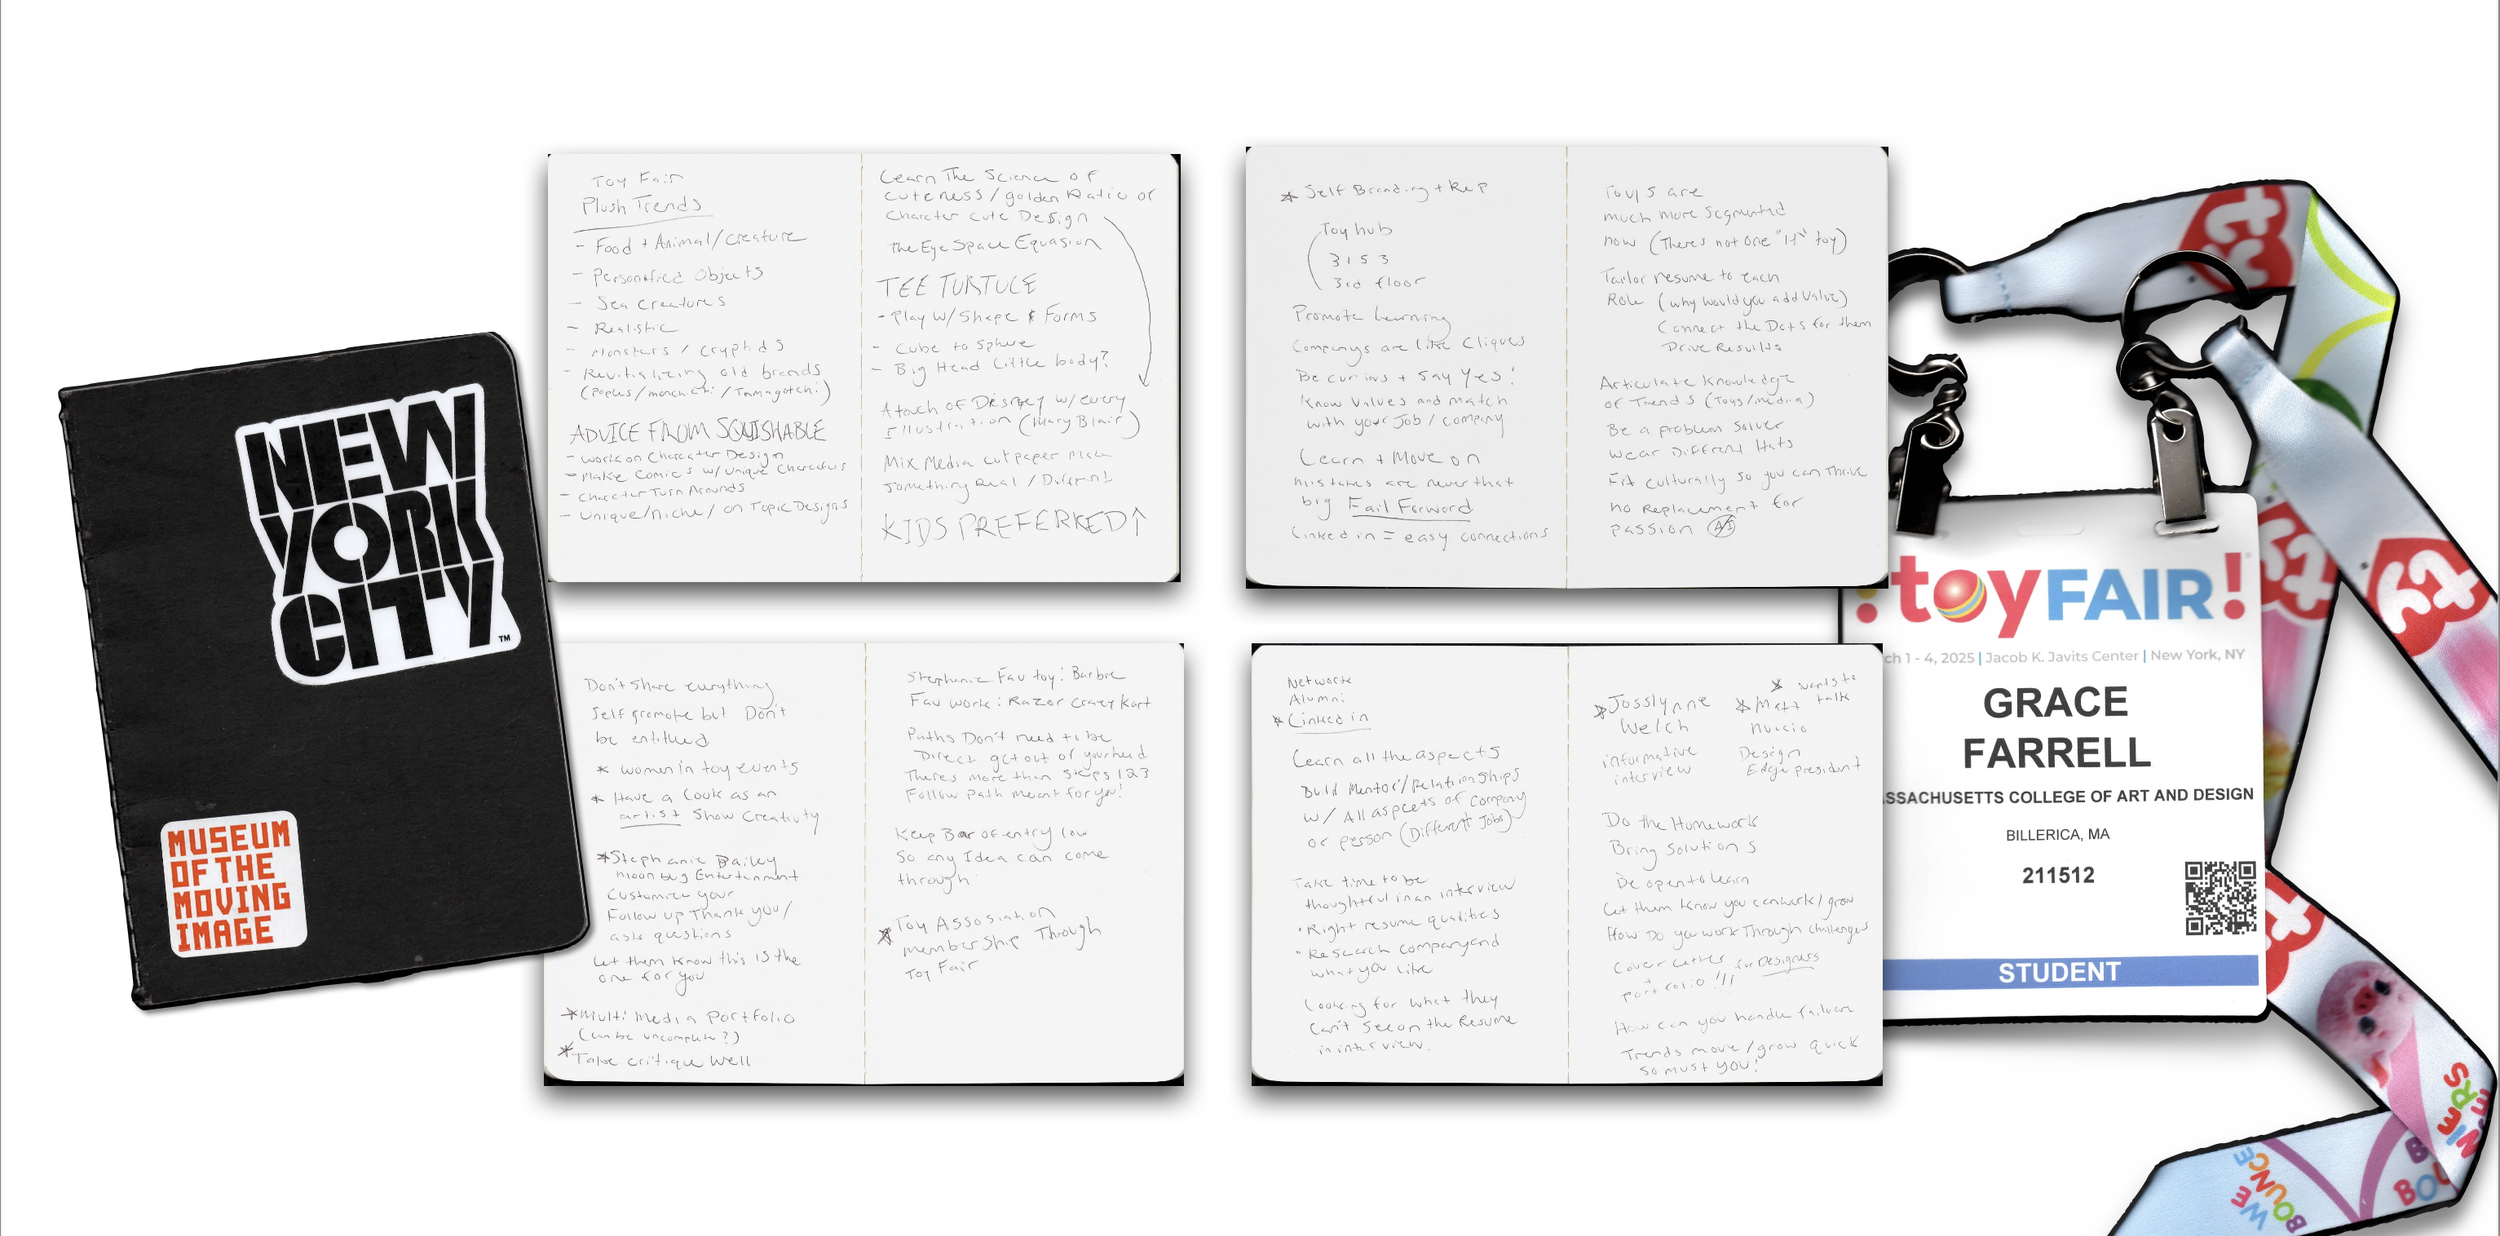 NEW
YORK
CITY
TM
MUSEUM
OF THE
MOVING
IMAGE
Toy Fair
Plush Trends
- Food + Animal/creature
- Personified Objects
- Sea creatures
- Realistic
- Monsters / cryptids
- Revitializing old brands
(Popples/monchichi/Tamagotchi)
ADVICE FROM SQUISHABLE
- work on Character Design
- Make Comics w/ unique Characters
- Character Turn Arounds
- Unique/Niche/on Topic Designs
Learn The Science of
cuteness/golden Ratio of
Character cute Design
The Eye Space Equasion
TEE TURTULE
- Play w/ Shape & Forms
- Cube to Sphere
- Big Head Little body?
A touch of Disney w/ every
Illustration (Mary Blair)
Mix Media cut paper Make
something Real / Different
KIDS PREFERRED↑
* Self Branding + Rep
Toy hub
3153
3rd floor
Promote Learning
Companys are like Cliques
Be curious + say yes!
Know Values and match
with your Job / company
Learn + Move on
mistakes are never that
big Fail Forward
Linked in = easy connections
Toys are
much more segmented
now (Theres not one "It" toy)
Tailor resume to each
Role (why would you add value)
Connect the Dots for them
Drive Results
Articulate Knowledge
of Trends (Toys/media)
Be a problem solver
wear Different Hats
Fit culturally so you can Thrive
no Replacement for
passion AI
Don't Share everything
self promote but Don't
be entitled
* women in toy events
* Have a look as an
artist Show Creativity
* Stephanie Bailey
moonbug Entertainment
Customize your
Follow up Thank you/
ask questions
Let them Know this is the
one for you
* Multi Media Portfolio
(can be uncomplete?)
* Take critique well
Stephanie Fav toy: Barbie
Fav work: Razor crazy kart
Paths Don't need to be
Direct get out of your head
Theres more than steps 123
Follow path meant for you!
Keep Bar of entry low
So any Idea can come
through
* Toy Assosiation
membership Through
Toy Fair
Network
Alumni
* Linked in
Learn all the aspects
Build Mentor/Relationships
w/ All aspects of company
or person (Different Jobs)
Take time to be
thoughtful in an interview
• Right resume qualities
• Research company and
what you like
Looking for what they
Can't See on the Resume
in interview.
* Josslynne
Welch
informative
interview
* wants to
talk
* Matt
Nuccio
Design
Edge president
Do the Homework
Bring Solutions
Be open to learn
Let them Know you can work/grow
How Do you work Through challenges
Cover Letter for Designers
+
portfolio!!!
How can you handle failure
Trends move/grow quick
so must YOU!
toyFAIR!
ch 1 - 4, 2025 | Jacob K. Javits Center | New York, NY
GRACE
FARRELL
SSACHUSETTS COLLEGE OF ART AND DESIGN
BILLERICA, MA
211512
STUDENT
ty
ty
ty
WE
BOUNCE